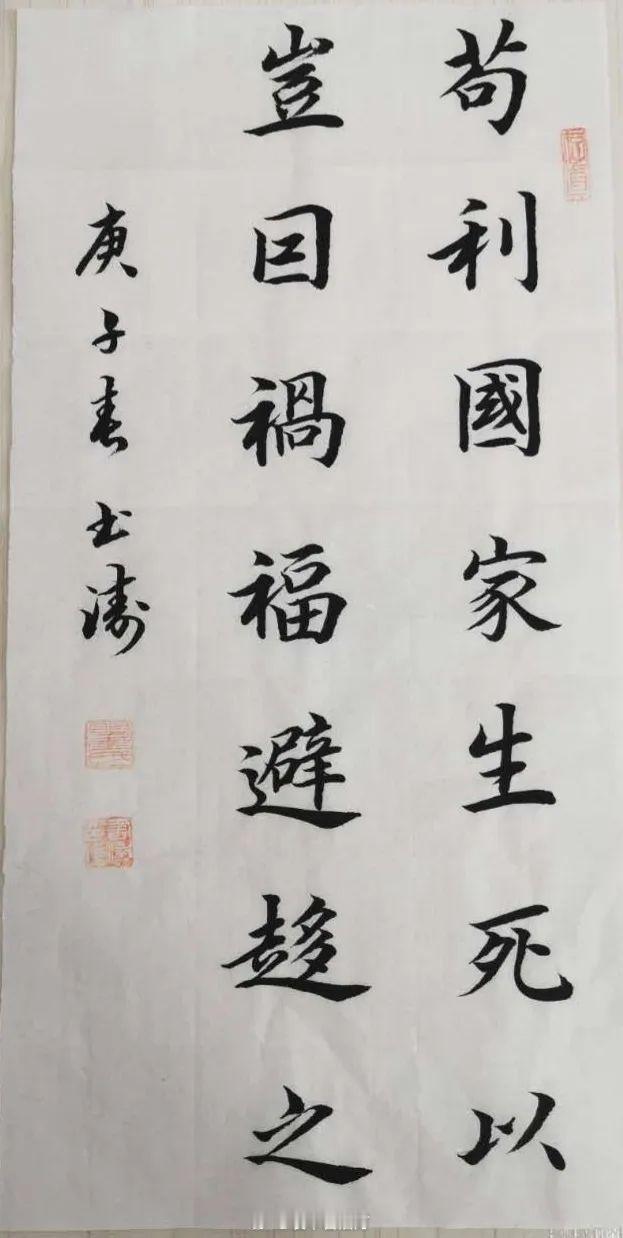 苟利國家生死以
豈囙禍福避趍之
庚子春玉濤